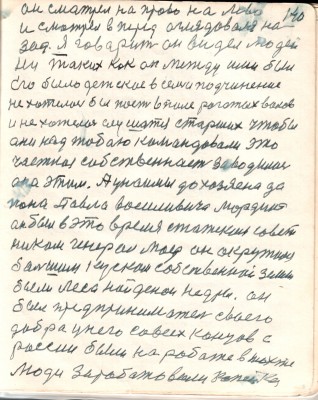 он смотрел на право на лево
140
и смотрел в перед оглядовался на
зад. Я говарит он видел людей
их таких как он между ими были
его было детское в семи подчинение
не хотелос бы пост роготых валов
и не хотелос слушатся старших чтобы
ани над тобаю командовали это
частная собственност заводилас
ана этим. Аунаимы до хозяена да
пона Павла восиливича Мордвит
он был в это время статский совет
ником генерал он окружил
балшим куском собственной земли
были леса найденой недры. он
был предприниматель своего
добра у него со всех концов с
россии были на работе в нохже
люди Заработовали копейка